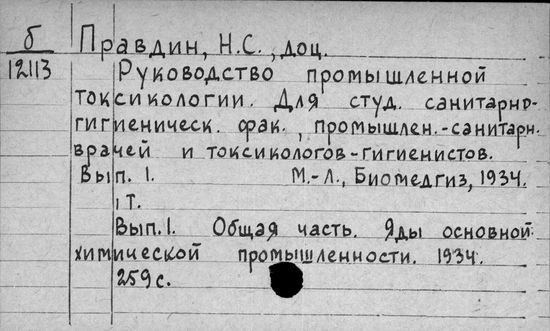 б Правдин, Н.С., доц.
12113 Руководство промышленной
токсикологии. Для студ. санитарно-
гигиеническ. фак., промышлен.-санитарн.
врачей и токсикологов-гигиенистов.
Вып. 1. М.-Л., Биомедгиз, 1934.
1 т.
Вып. 1. Общая часть. Яды основной
химической промышленности. 1934.
259 с.